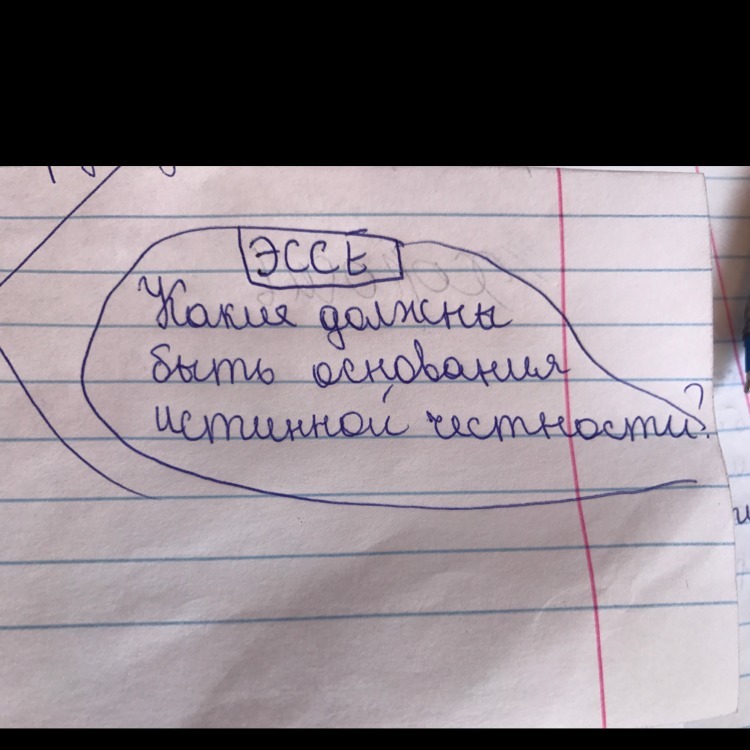 ЭССЕ
Какие должны
быть основания
истинной честности?